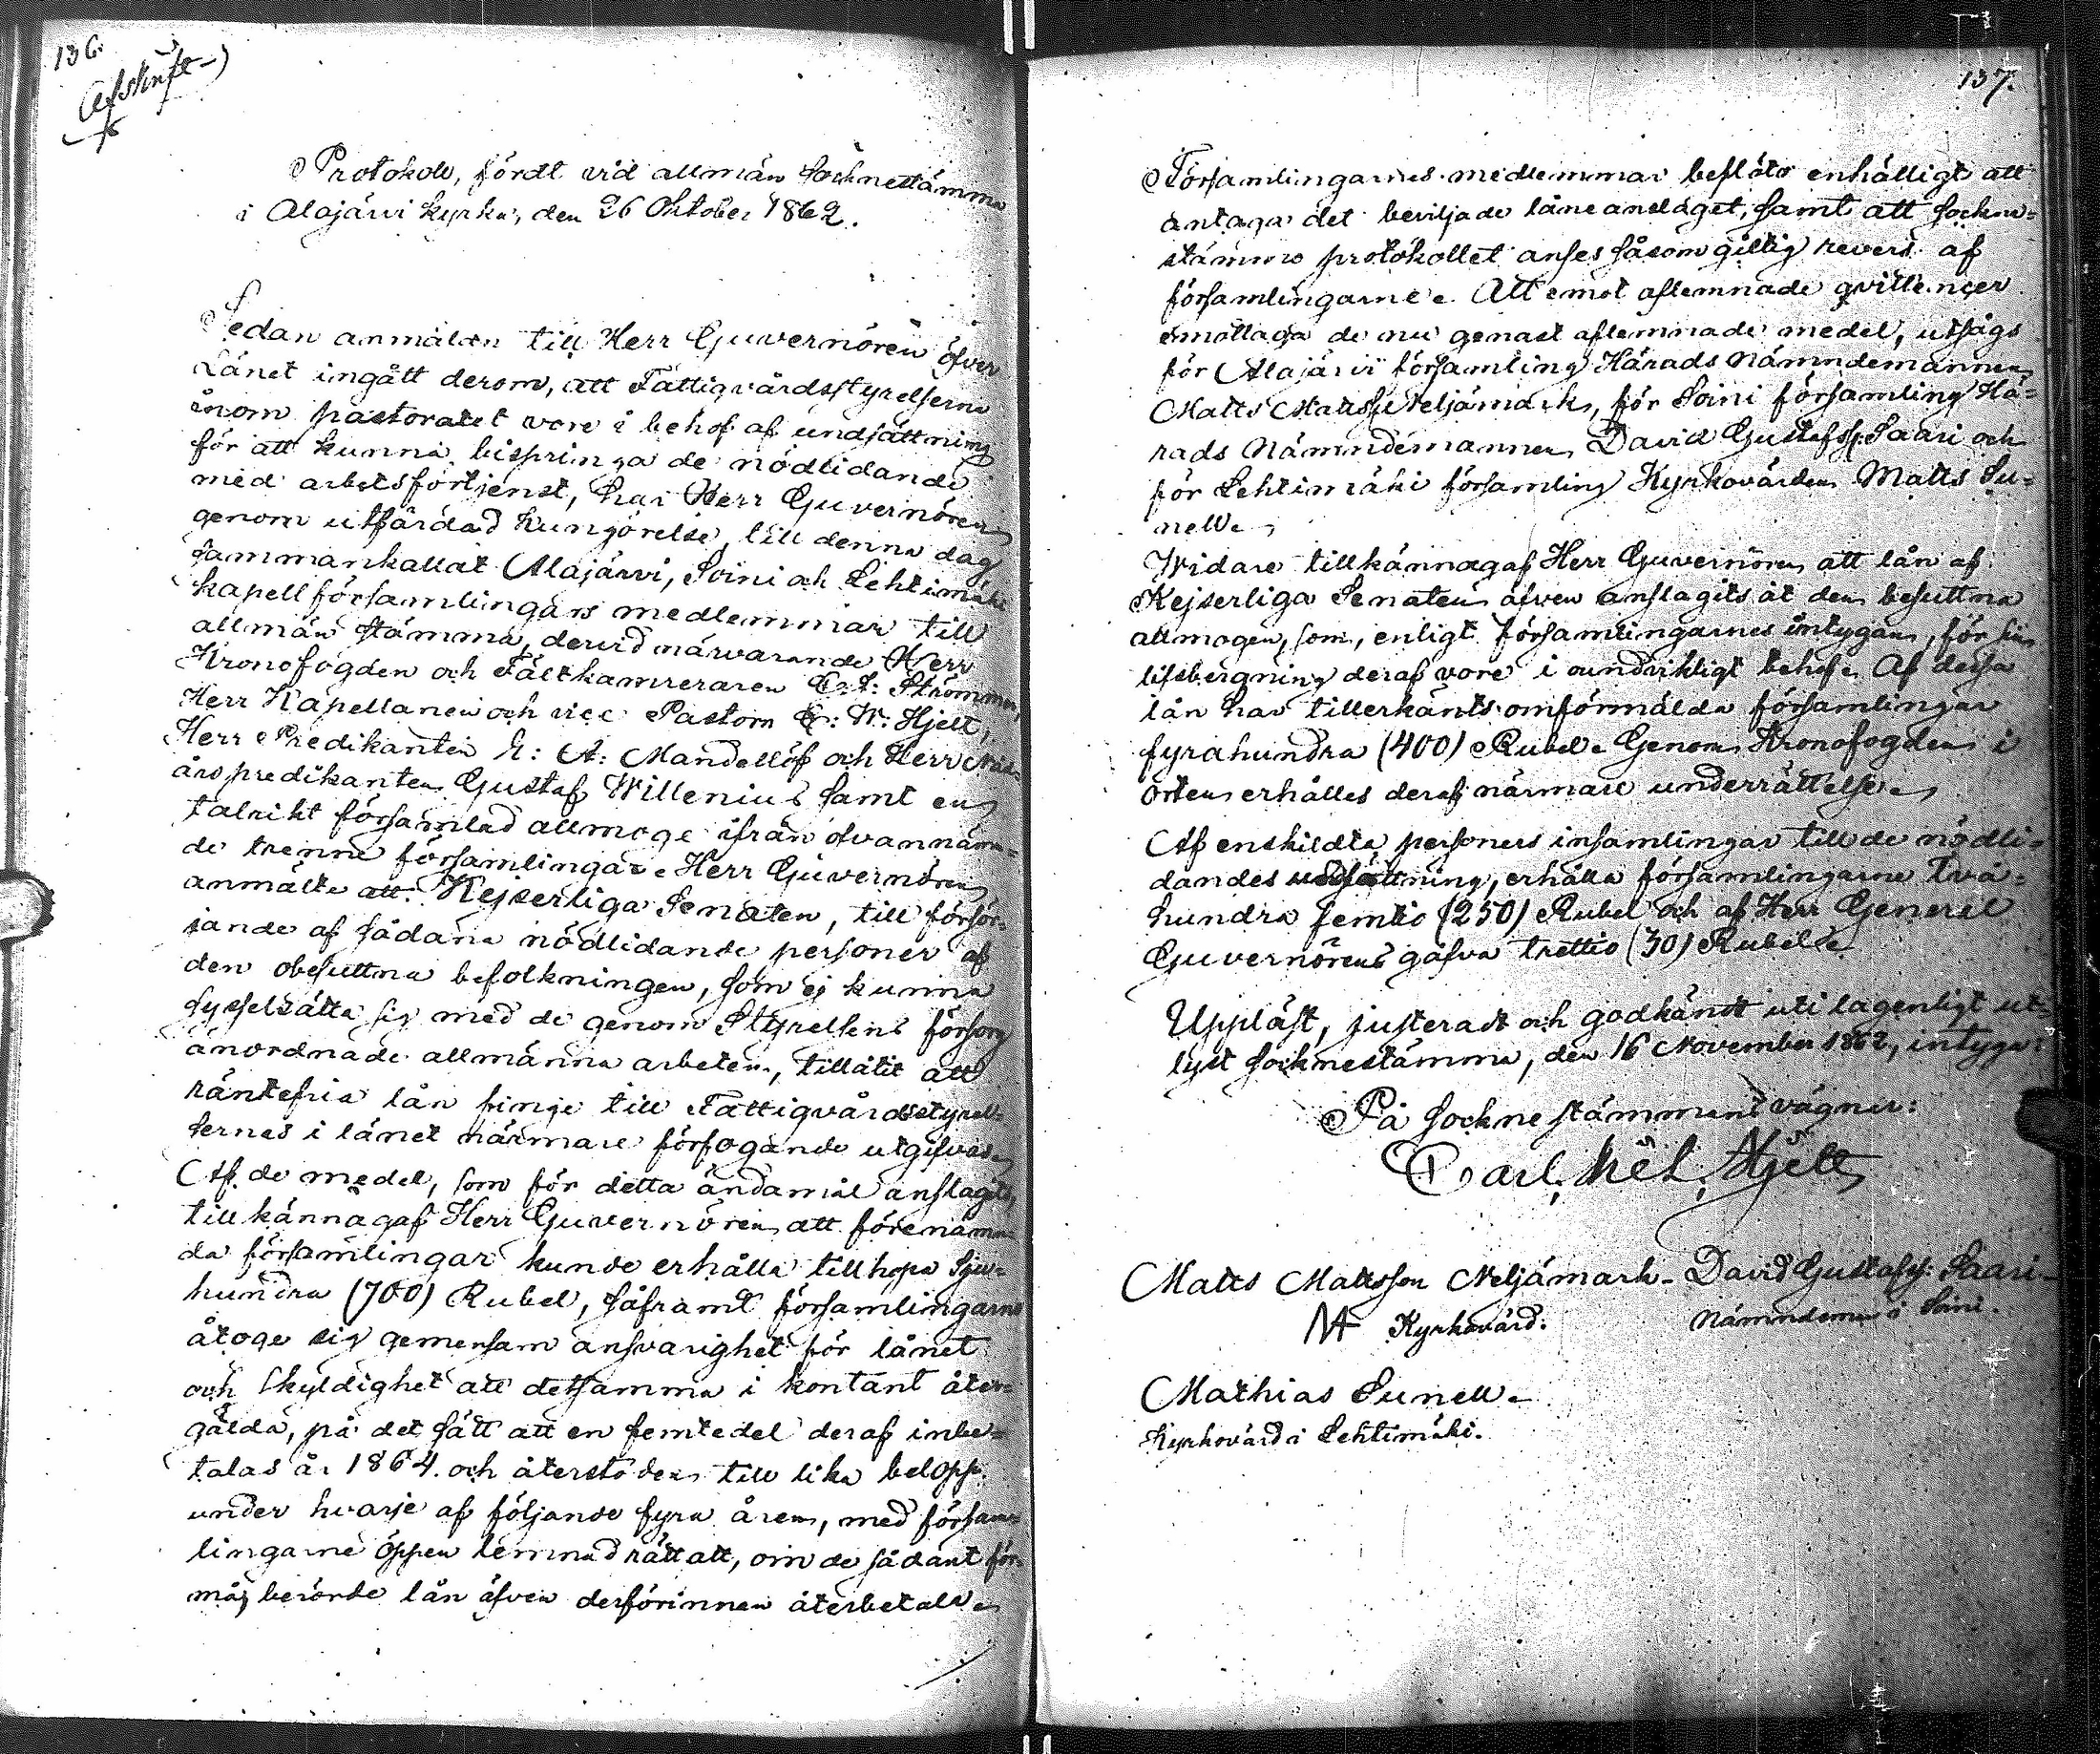 136.
Afskrift
Protokoll, fördt vid allmän Socknestämma
i Alajärvi kyrka, den 26 Oktober 1862.
Sedan anmälan till Herr Guvernören öfver
Länet ingått derom, att Fattigvårdsstyrelserna
inom pastoratet vore i behof af undsättning
för att kunna bispringa de nödlidande
med arbetsförtjenst, har Herr Guvernören
genom utfärdad kungörelse, till denna dag
sammankallat Alajärvi, Soini och Lehtimäki
kapellförsamlingars medlemmar till
allmän stämma, dervid närvarande Herr
Kronofogden och Fältkamreraren Strömmer,
Herr Kapellanen och vice Pastorn C: W: Hjelt,
Herr Predikanten K: A: Mandellöf och Herr Nöd-
årspredikanten Gustaf Willenius samt en
talrikt församlad allmoge ifrån ofvannämn-
de trenne församlingar. Herr Guvernören
anmälte att Kejserliga Senaten, till försör-
jande af sådana nödlidande personer af
den obesuttna befolkningen, som ej kunna
sysselsätta sig med de genom Styrelsens försorg
anordnade allmänna arbeten, tillåtit att
räntefria lån finge till Fattigvårdsstyrel-
sernas i länet närmare förfogande utgifvas.
Af de medel, som för detta ändamål anslagits,
tillkännagaf Herr Guvernören att förenämn-
da församlingar kunde erhålla tillhopa Sju-
hundra (700) Rubel, såframt församlingarne
åtoge sig gemensam ansvarighet för lånet
och skyldighet att detsamma i kontant åter-
gälda, på det sätt att en femtedel deraf inbe-
talas år 1864. och återstoden till lika belopp
under hvarje af följande fyra åren, med försam-
lingarne öppen lemnad rätt att, om de sådant för-
må, berörde lån äfven derförinnan återbetala.
137.
Församlingarnes medlemmar beslöto enhälligt att
antaga det beviljade låneanslaget, samt att sockne-
stämmo protokollet anses såsom giltig revers af
församlingarne. Att emot aflemnade qvittencer
emottaga de nu genast aflemnade medel, utsågs
för Alajärvi församling Härads Nämndemannen
Matts Mattss: Neljämark, för Soini församling Hä-
rads Nämndemannen David Gustafss: Saari och
för Lehtimäki församling Kyrkovärden Matts Su-
nell.
Widare tillkännagaf Herr Guvernören att lån af
Kejserliga Senaten äfven anslagits åt den besuttna
allmogen, som, enligt församlingarnes intygan, för sin
lifsbergning deraf vore i oundvikligt behof. Af dessa
lån har tillerkänts omförmälda församlingar
fyrahundra (400) Rubel. Genom Kronofogden i
Orten erhålles deraf närmare underrättelse.
Af enskildta personers insamlingar till de nödli-
dandes undsättning, erhålla församlingarne Två-
hundra femtio (250) Rubel och af Herr General
Guvernörens gåfva trettio (30) Rubel.
Uppläst, justeradt och godkändt uti lagenligt ut-
lyst socknestämma, den 16 November 1862, intyga:
På socknestämmans vägnar:
Carl Wel. Hjelt
Matts Mattsson Neljämark- David Gustafss: Saari-
Kyrkovärd. Nämndeman i Soini.
Mathias Sunell.
Kyrkovärd i Lehtimäki.